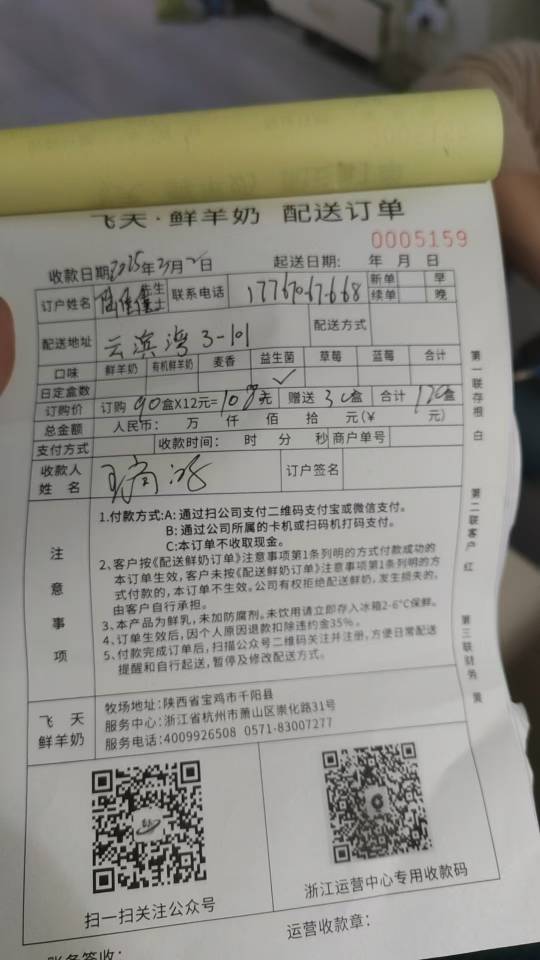 飞天·鲜羊奶 配送订单
0005159
收款日期:2025年2月2日 起送日期: 年 月 日
订户姓名 先生 女士 联系电话 17767076668 新单 早
续单 晚
配送地址 云滨湾3-101 配送方式
口味 鲜羊奶 有机鲜羊奶 麦香 益生菌 草莓 蓝莓 合计
日定盒数 ✓
订购价 订购90盒X12元=1080元 赠送30盒 合计120盒
总金额 人民币: 万 仟 佰 拾 元(¥ 元)
支付方式 收款时间: 时 分 秒 商户单号
收款人姓名 订户签名
注意事项
1.付款方式:A:通过扫公司支付二维码支付宝或微信支付。
B:通过公司所属的卡机或扫码机打码支付。
C:本订单不收取现金。
2、客户按《配送鲜奶订单》注意事项第1条列明的方式付款成功的
本订单生效,客户未按《配送鲜奶订单》注意事项第1条列明的方
式付款的,本订单不生效。公司有权拒绝配送鲜奶,发生损失的,
由客户自行承担。
3、本产品为鲜乳,未加防腐剂。未饮用请立即存入冰箱2-6°C保鲜。
4、订单生效后,因个人原因退款扣除违约金35%。
5、付款完成订单后,扫描公众号二维码关注并注册,方便日常配送
提醒和自行起送,暂停及修改配送方式。
飞天
鲜羊奶
牧场地址:陕西省宝鸡市千阳县
服务中心:浙江省杭州市萧山区崇化路31号
服务电话:4009926508 0571-83007277
扫一扫关注公众号
浙江运营中心专用收款码
运营收款章:
账务签收:
第一联存根 白
第二联客户 红
第三联财务 黄